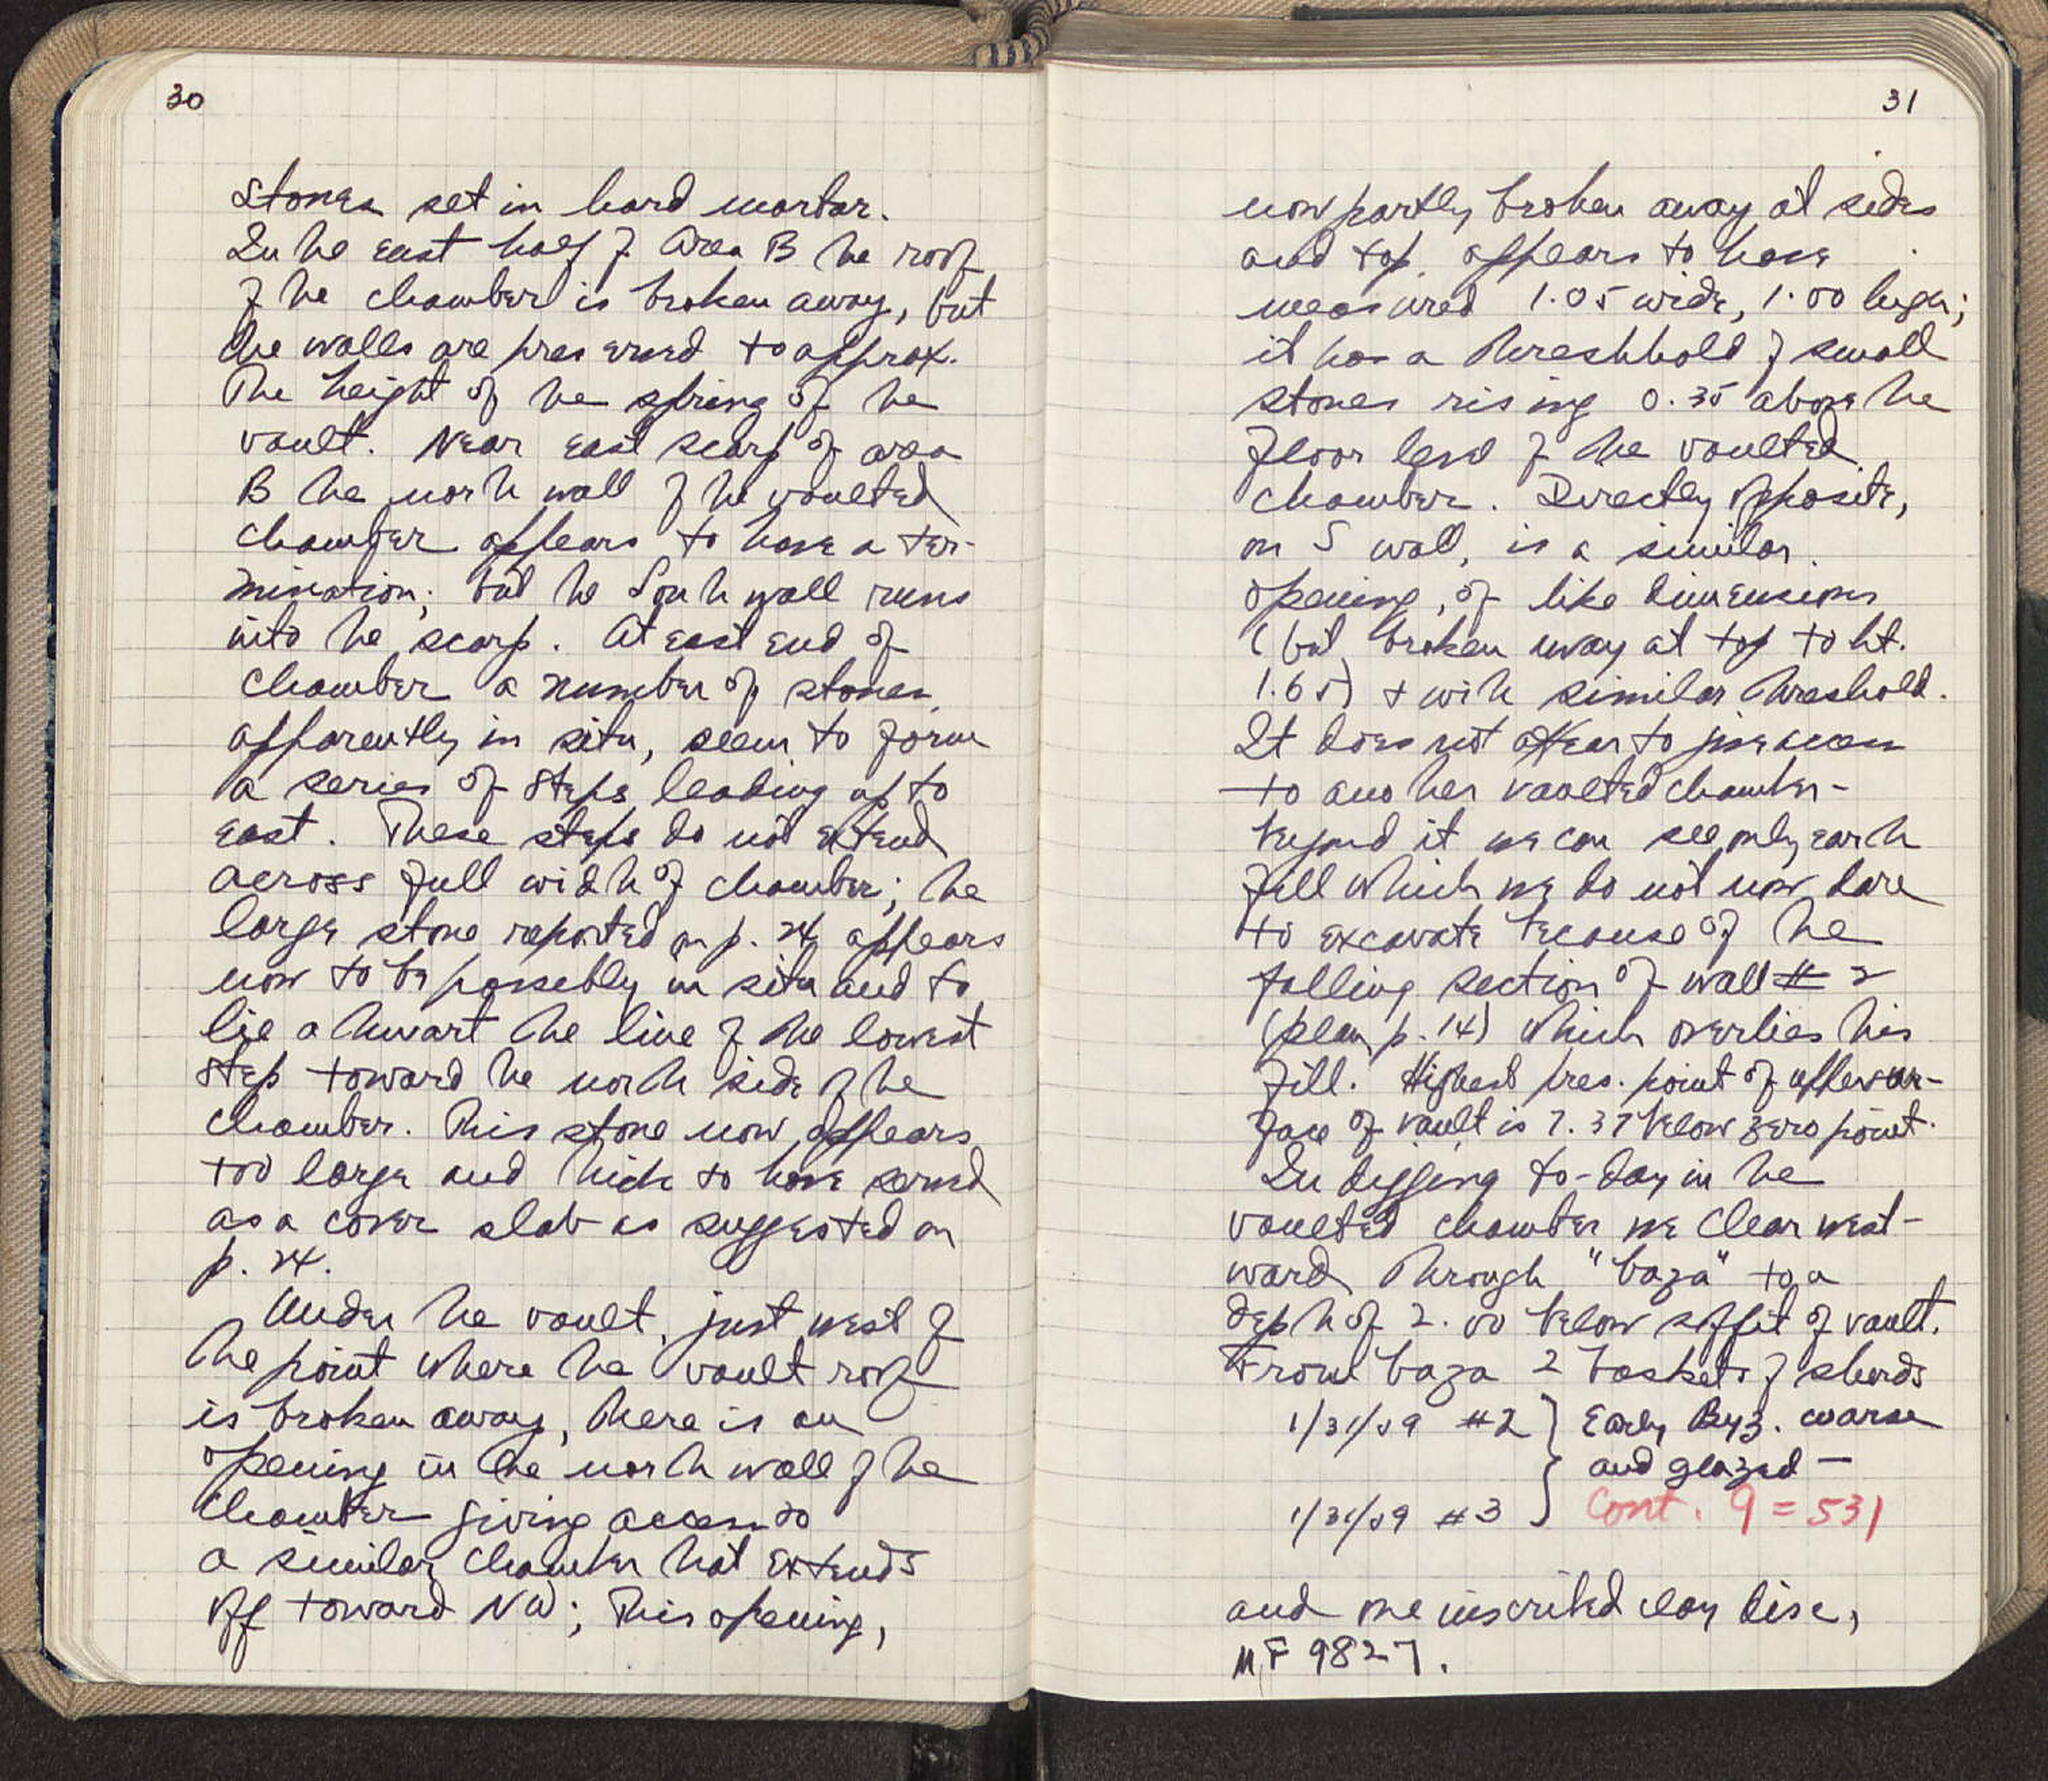 30
stones set in hard mortar.
In the east half of Area B the roof
of the chamber is broken away, but
the walls are preserved to approx.
the height of the spring of the
vault. Near east scarp of area
B the north wall of the vaulted
chamber appears to have a ter-
mination; but the South wall runs
into the scarp. At east end of
chamber a number of stones,
apparently in situ, seem to form
a series of steps leading up to
east. These steps do not extend
across full width of chamber; the
large stone reported on p. 24 appears
now to be possibly in situ and to
lie athwart the line of the lowest
step toward the north side of the
chamber. This stone now appears
too large and thick to have served
as a cover slab as suggested on
p. 24.
Under the vault, just west of
the point where the vault roof
is broken away, there is an
opening in the north wall of the
chamber giving access to
a similar chamber that extends
off toward NW; This opening,
31
now partly broken away at sides
and top, appears to have
measured 1.05 wide, 1.00 high;
it has a threshhold of small
stones rising 0.35 above the
floor level of the vaulted
chamber. Directly opposite,
on S wall, is a similar
opening, of like dimensions
(but broken away at top to ht.
1.65) + with similar threshold.
It does not appear to give access
to another vaulted chamber -
beyond it we can see only earth
fill which we do not now dare
to excavate because of the
falling section of wall # 2
(plan p. 14) which overlies this
fill. Highest pres. point of upper sur-
face of vault is 7.37 below zero point.
In digging to-day in the
vaulted chamber we clear west-
ward through "baza" to a
depth of 2.00 below soffit of vault.
From baza 2 baskets of sherds
1/31/59 #2 } Early Byz. coarse
and glazed —
1/31/59 #3 Cont. 9 = 531
and one inscribed clay disc,
MF 9827.